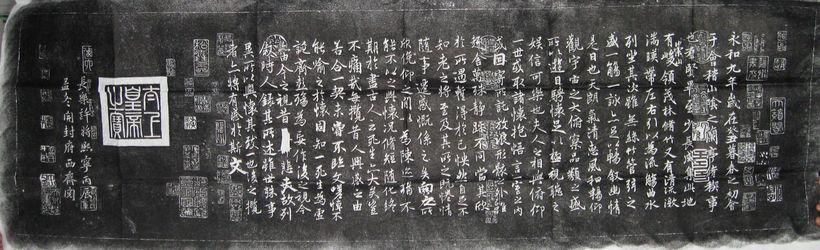 永和九年歲在癸丑暮春之初會
于會稽山陰之蘭亭脩稧事
也羣賢畢至少長咸集此地
有崇山峻領茂林脩竹又有清流激
湍暎帶左右引以為流觴曲水
列坐其次雖無絲竹管弦之
盛一觴一詠亦足以暢叙幽情
是日也天朗氣清惠風和暢仰
觀宇宙之大俯察品類之盛
所以遊目騁懷足以極視聽之
娛信可樂也夫人之相與俯仰
一世或取諸懷抱悟言一室之內
或因寄所託放浪形骸之外雖
趣舍萬殊靜躁不同當其欣
於所遇蹔得於己怏然自足不
知老之將至及其所之既惓情
隨事遷感慨係之矣向之所
欣俛仰之閒以為陳迹猶不
能不以之興懷況脩短隨化終
期於盡古人云死生亦大矣豈
不痛哉每攬昔人興感之由
若合一契未嘗不臨文嗟悼不
能喻之於懷固知一死生為虛
誕齊彭殤為妄作後之視今
亦由今之視昔悲夫故列
叙時人錄其所述雖世殊事
異所以興懷其致一也後之攬
者亦將有感於斯文
太上皇帝之寶
長樂許將熙寧丙辰
孟冬開封府西齋閱